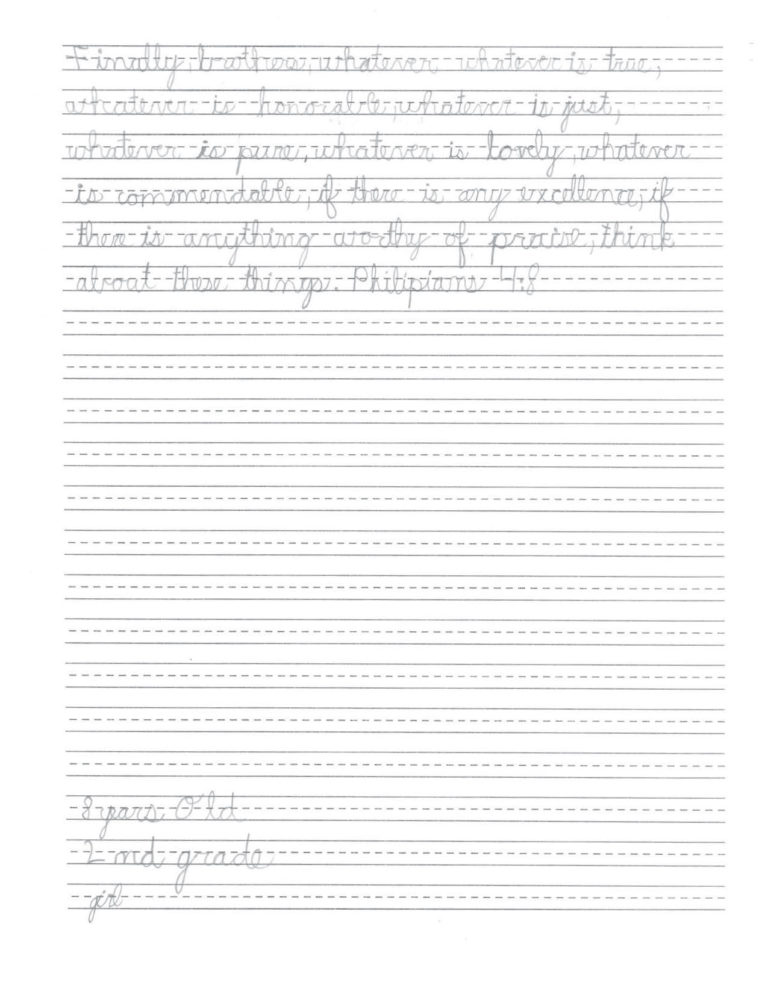 Finally, brothers, whatever whatever is true,
whatever is honorable, whatever is just,
whatever is pure, whatever is lovely, whatever
is commendable, if there is any excellence, if
there is anything worthy of praise, think
about these things. Philipians 4:8
8 years Old
2nd grade
girl